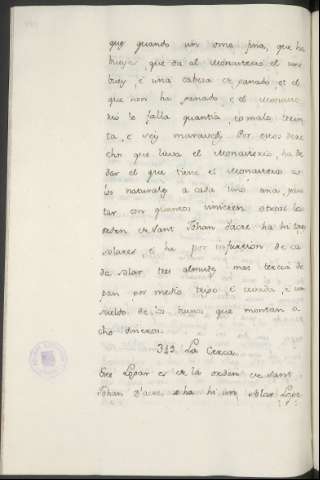 que quando un ome fina, que ha
bueyes que da al Monasterio el un
buey, e una cabeza de ganado, et el
que non ha ganado, e el Monaste
rio le falla quantia, tomale trein
ta, e seis maravedis. Por estos dere
chos que lieva el Monasterio, ha de
dar el que tiene el Monasterio a
los naturales a cada uno una yan
tar con quantos vinieren otrosi la
orden de Sant Johan d'acre ha hi tres
solares et ha por infurcion de ca
da solar tres almudes mas tercia de
pan por medio trigo, e cevada, e un
sueldo de los buenos que montan o
cho dineros.
333. La Cerca.
Este Logar es de la orden de Sant
Johan D'acre, e ha hi un solar Lope